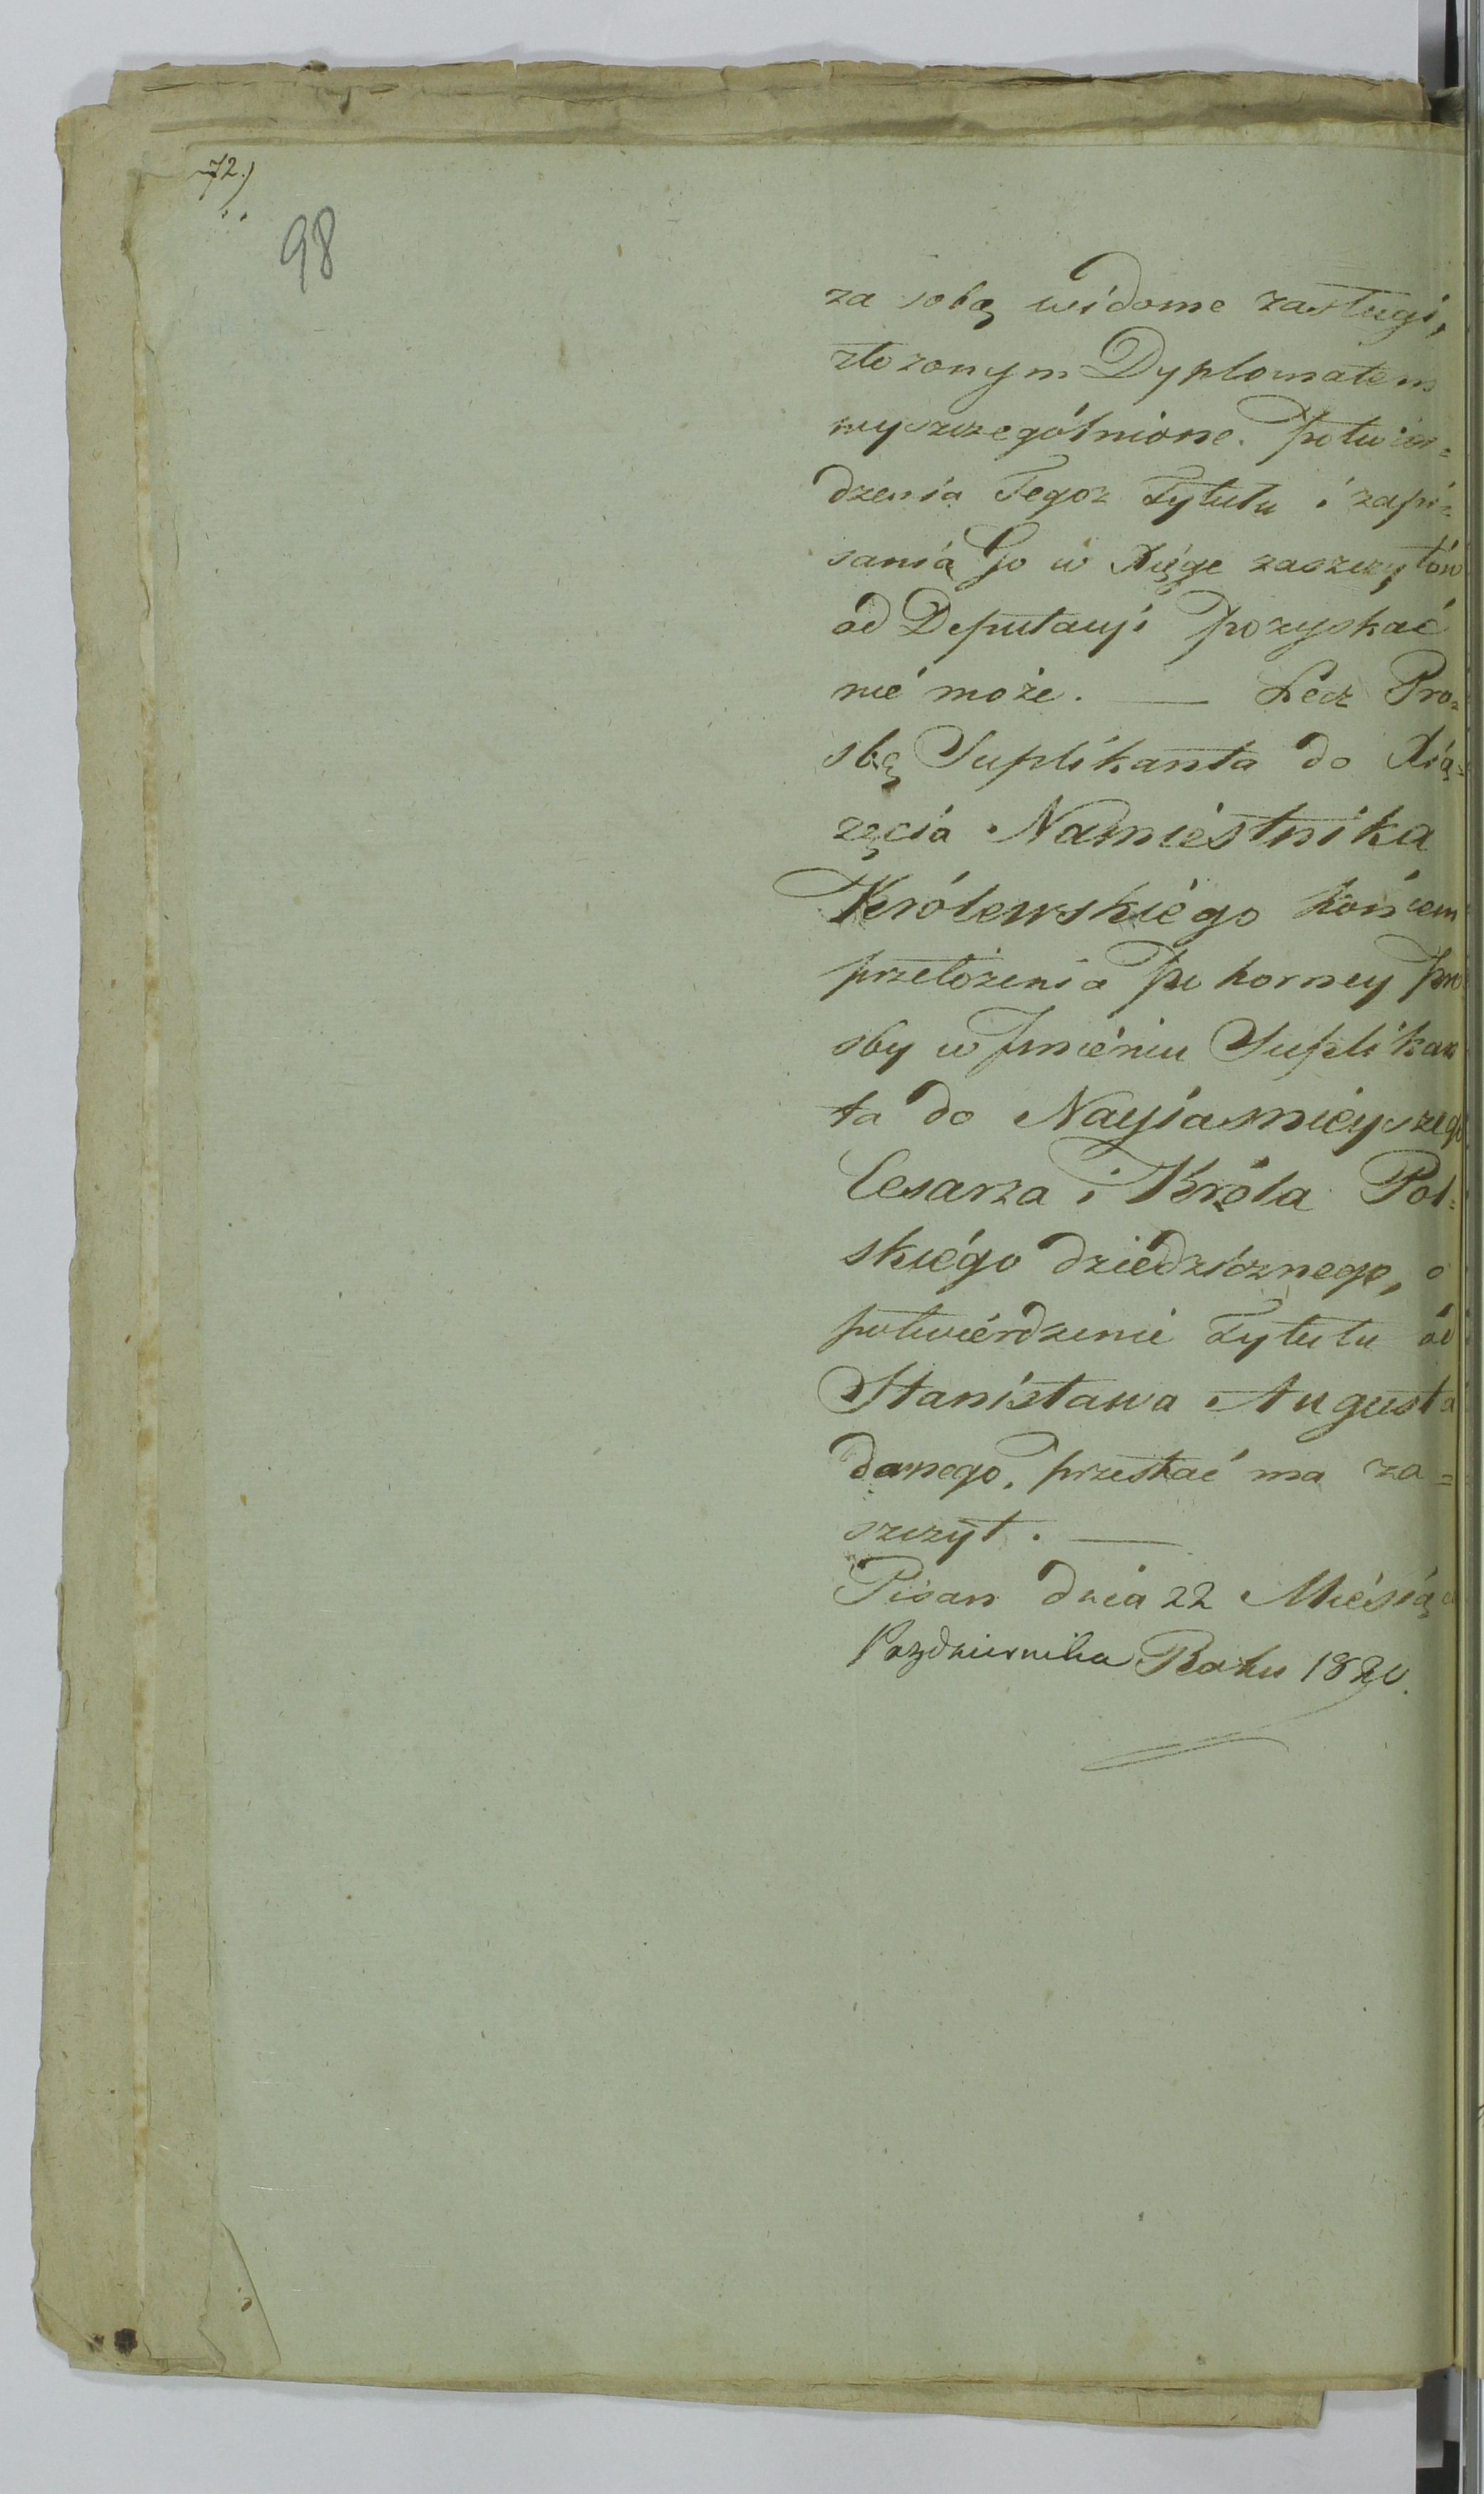 72.)
98
za sobą widome zasługi,
złożonym Dyplomatem
wyszczególnione. potwier=
dzenia Tegoż Tytułu i zapi=
sania Go w Xięgę zaszczytów
od Deputacyi pozyskać
nié może. — Lecz Pro=
sbę Suplikanta do Xią=
żęcia Namiéstnika
Królewskiégo końcem
przełożenia pokorney pro
sby w Jmieniu Suplikan
ta do Nayiaśniéyszego
Cesarza i Króla Pol=
skiégo dziedzicznego, o
potwiérdzenie Tytułu od
Stanisława Augusta
danego, przesłać ma za=
szczyt. —
Pisan dnia 22 Miésiąca
Pazdziernika Roku 1820.